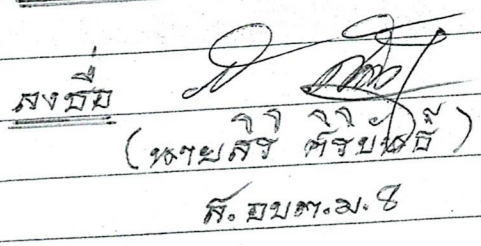 ลงชื่อ
(นายสิริ ศิริบันธ์)
ส.อบต.ม.8